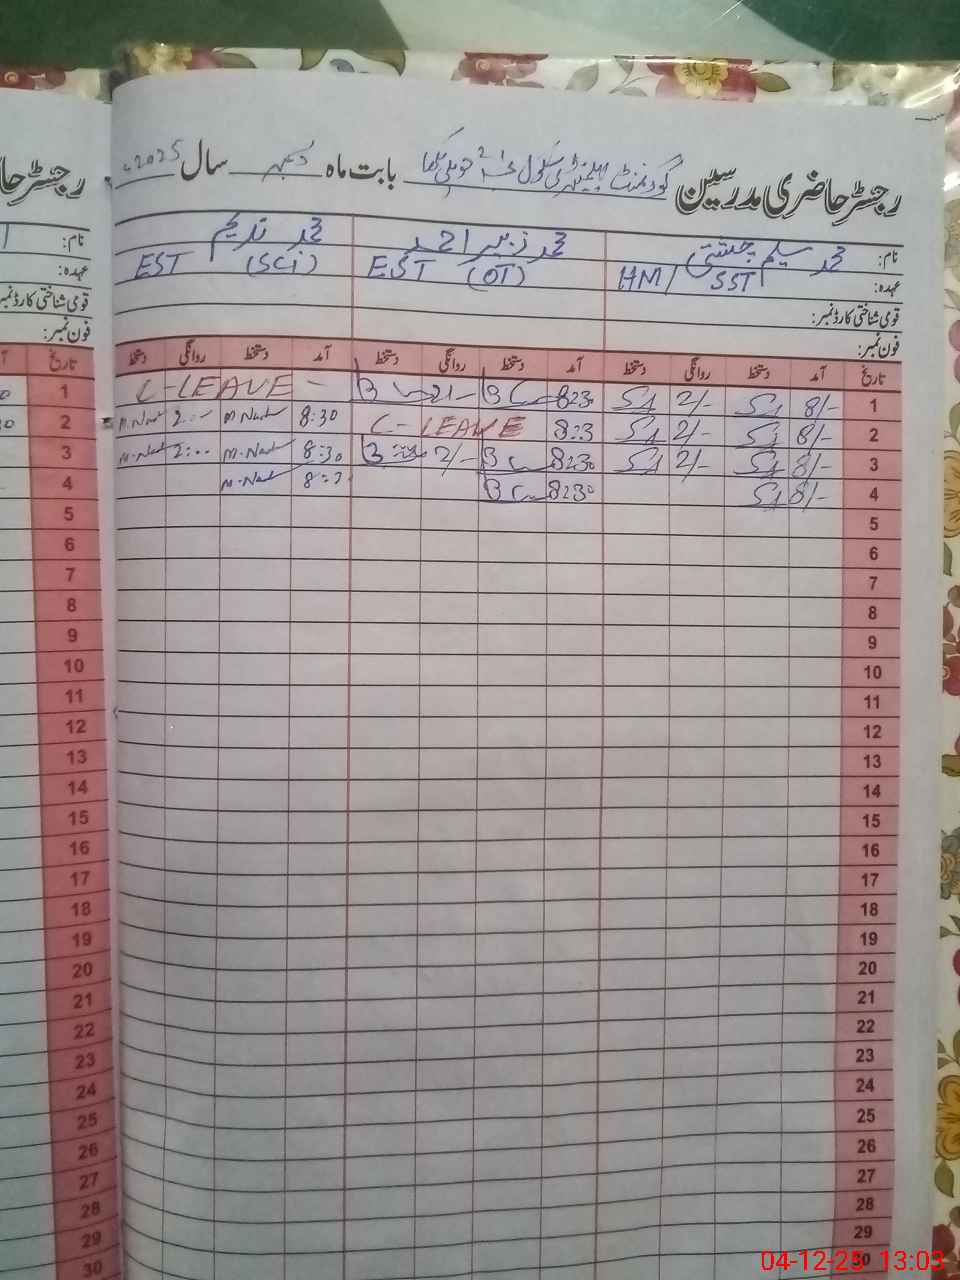 رجسٹر حاضری مدرسین گورنمنٹ ایلیمنٹری سکول حویلی لکھا بابت ماہ دسمبر سال 2025ء
رجسٹر حا
نام: محمد سلیم چشتی محمد زبیر احمد محمد ندیم
عہدہ: HM/ SST EST (OT) EST (SCi)
قومی شناختی کارڈ نمبر:
فون نمبر:
نام:
عہدہ:
قومی شناختی کارڈ نمبر
فون نمبر:
تاریخ آمد دستخط روانگی دستخط آمد دستخط روانگی دستخط آمد دستخط روانگی دستخط تاریخ
1 8/- 2/- 8:30 2/- C-LEAVE - 1
2 8/- 2/- 8:3 C-LEAVE 8:30 2:-- 2
3 8/- 2/- 8:30 2/- 8:30 2:00 3
4 8/- 8:30 8:3 4
5 5
6 6
7 7
8 8
9 9
10 10
11 11
12 12
13 13
14 14
15 15
16 16
17 17
18 18
19 19
20 20
21 21
22 22
23 23
24 24
25 25
26 26
27 27
28 28
29 29
30 30
04-12-25 13:03